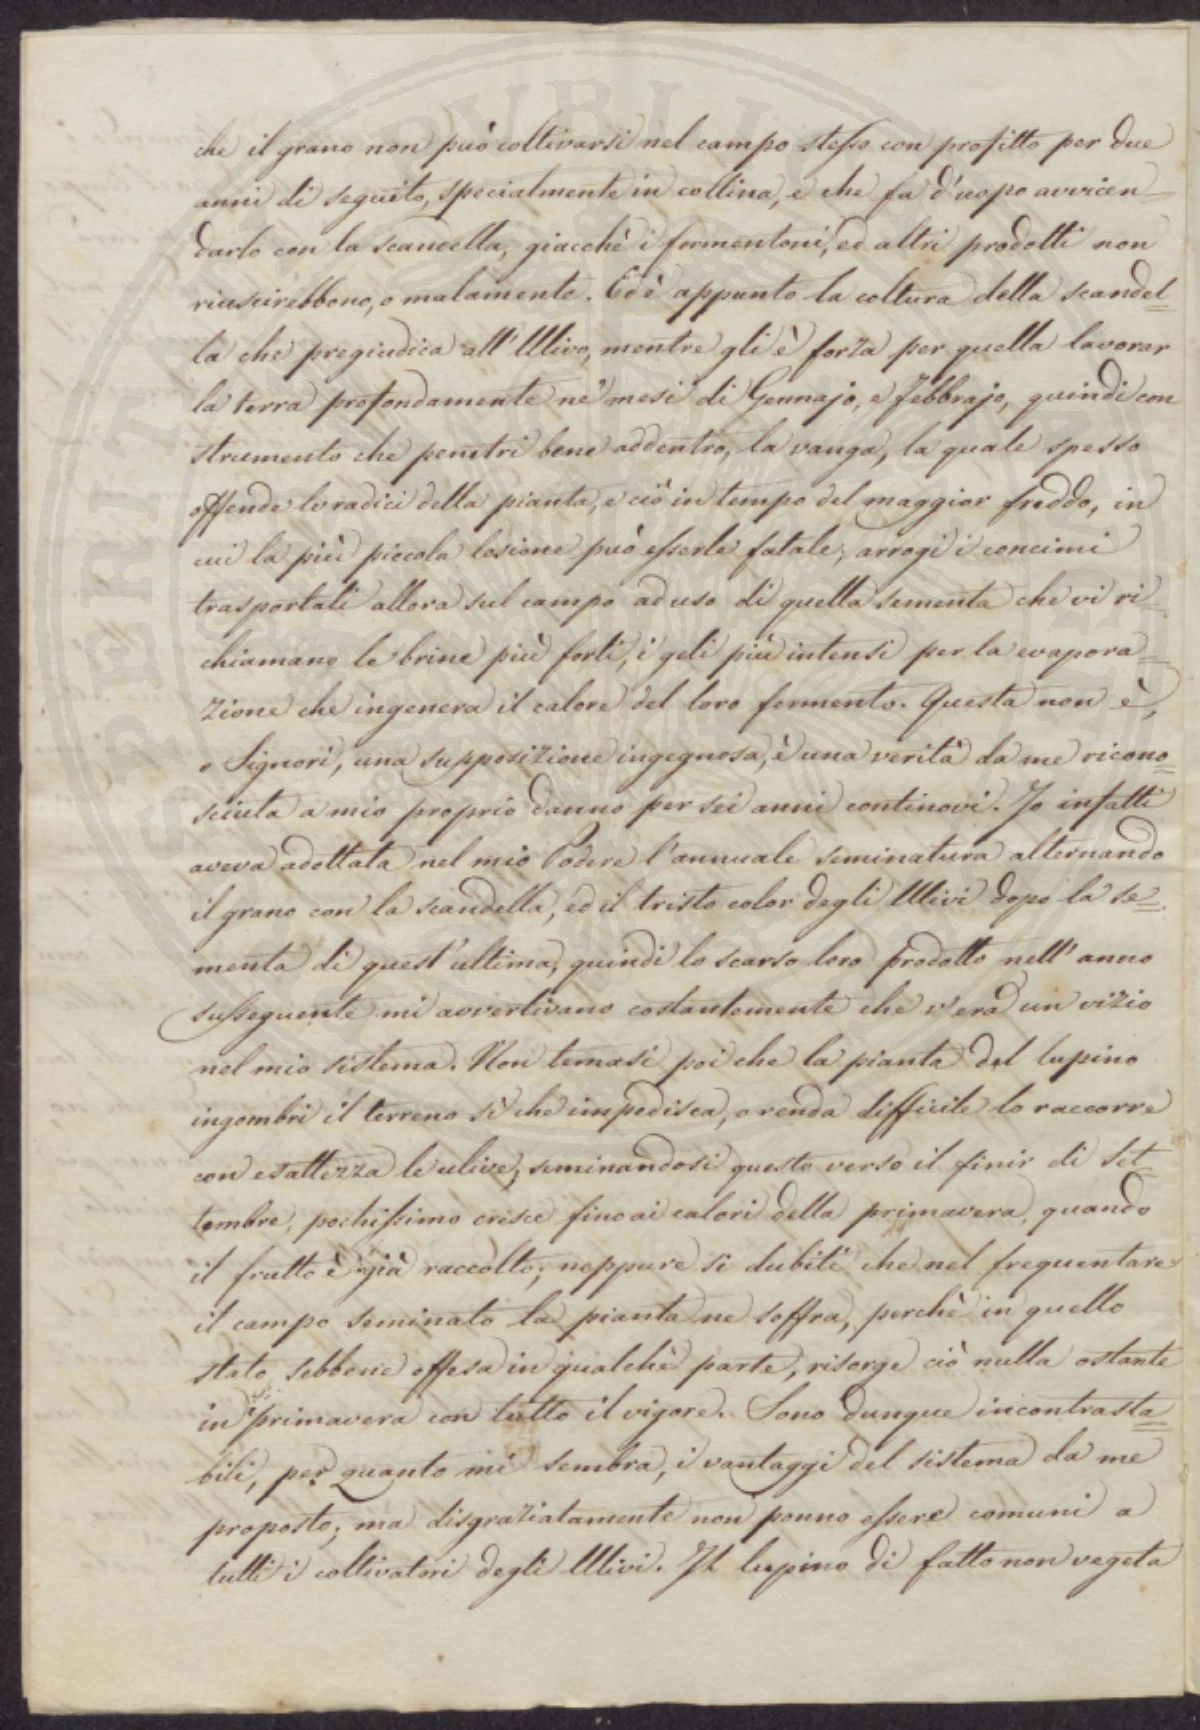 che il grano non può coltivarsi nel campo stesso con profitto per due
anni di seguito, specialmente in collina, e che fa d'uopo avvicen=
darlo con la scandella, giacchè i formentoni, ed altri prodotti non
riuscirebbono, o malamente. Ed è appunto la coltura della scandel=
la che pregiudica all'Ulivo, mentre gli è forza per quella lavorar
la terra profondamente ne' mesi di Gennajo, e Febbrajo, quindi con
strumento che penetri bene addentro, la vanga, la quale spesso
offende le radici della pianta, e ciò in tempo del maggior freddo, in
cui la più piccola lesione può esserle fatale; arrogi i concimi
trasportati allora sul campo ad uso di quella sementa che vi ri=
chiamano le brine più forti, i geli più intensi per la evapora=
zione che ingenera il calore del loro fermento. Questa non è,
o Signori, una supposizione ingegnosa, è una verità da me ricono=
sciuta a mio proprio danno per sei anni continovi. Io infatti
aveva adottata nel mio Podere l'annuale seminatura alternando
il grano con la scandella, ed il tristo color degli Ulivi dopo la se=
menta di quest'ultima, quindi lo scarso loro prodotto nell'anno
susseguente mi avvertivano costantemente che v'era un vizio
nel mio sistema. Non temasi poi che la pianta del lupino
ingombri il terreno sì che impedisca, o renda difficile lo raccorre
con esattezza le ulive; seminandosi questo verso il finir di Set=
tembre, pochissimo cresce fino ai calori della primavera, quando
il frutto è già raccolto; neppure si dubiti che nel frequentare
il campo seminato la pianta ne soffra, perchè in quello
stato sebbene offesa in qualche parte, risorge ciò nulla ostante
in primavera con tutto il vigore. Sono dunque incontrasta=
bili, per quanto mi sembra, i vantaggi del sistema da me
proposto; ma disgraziatamente non ponno essere comuni a
tutti i coltivatori degli Ulivi. Il lupino di fatto non vegeta